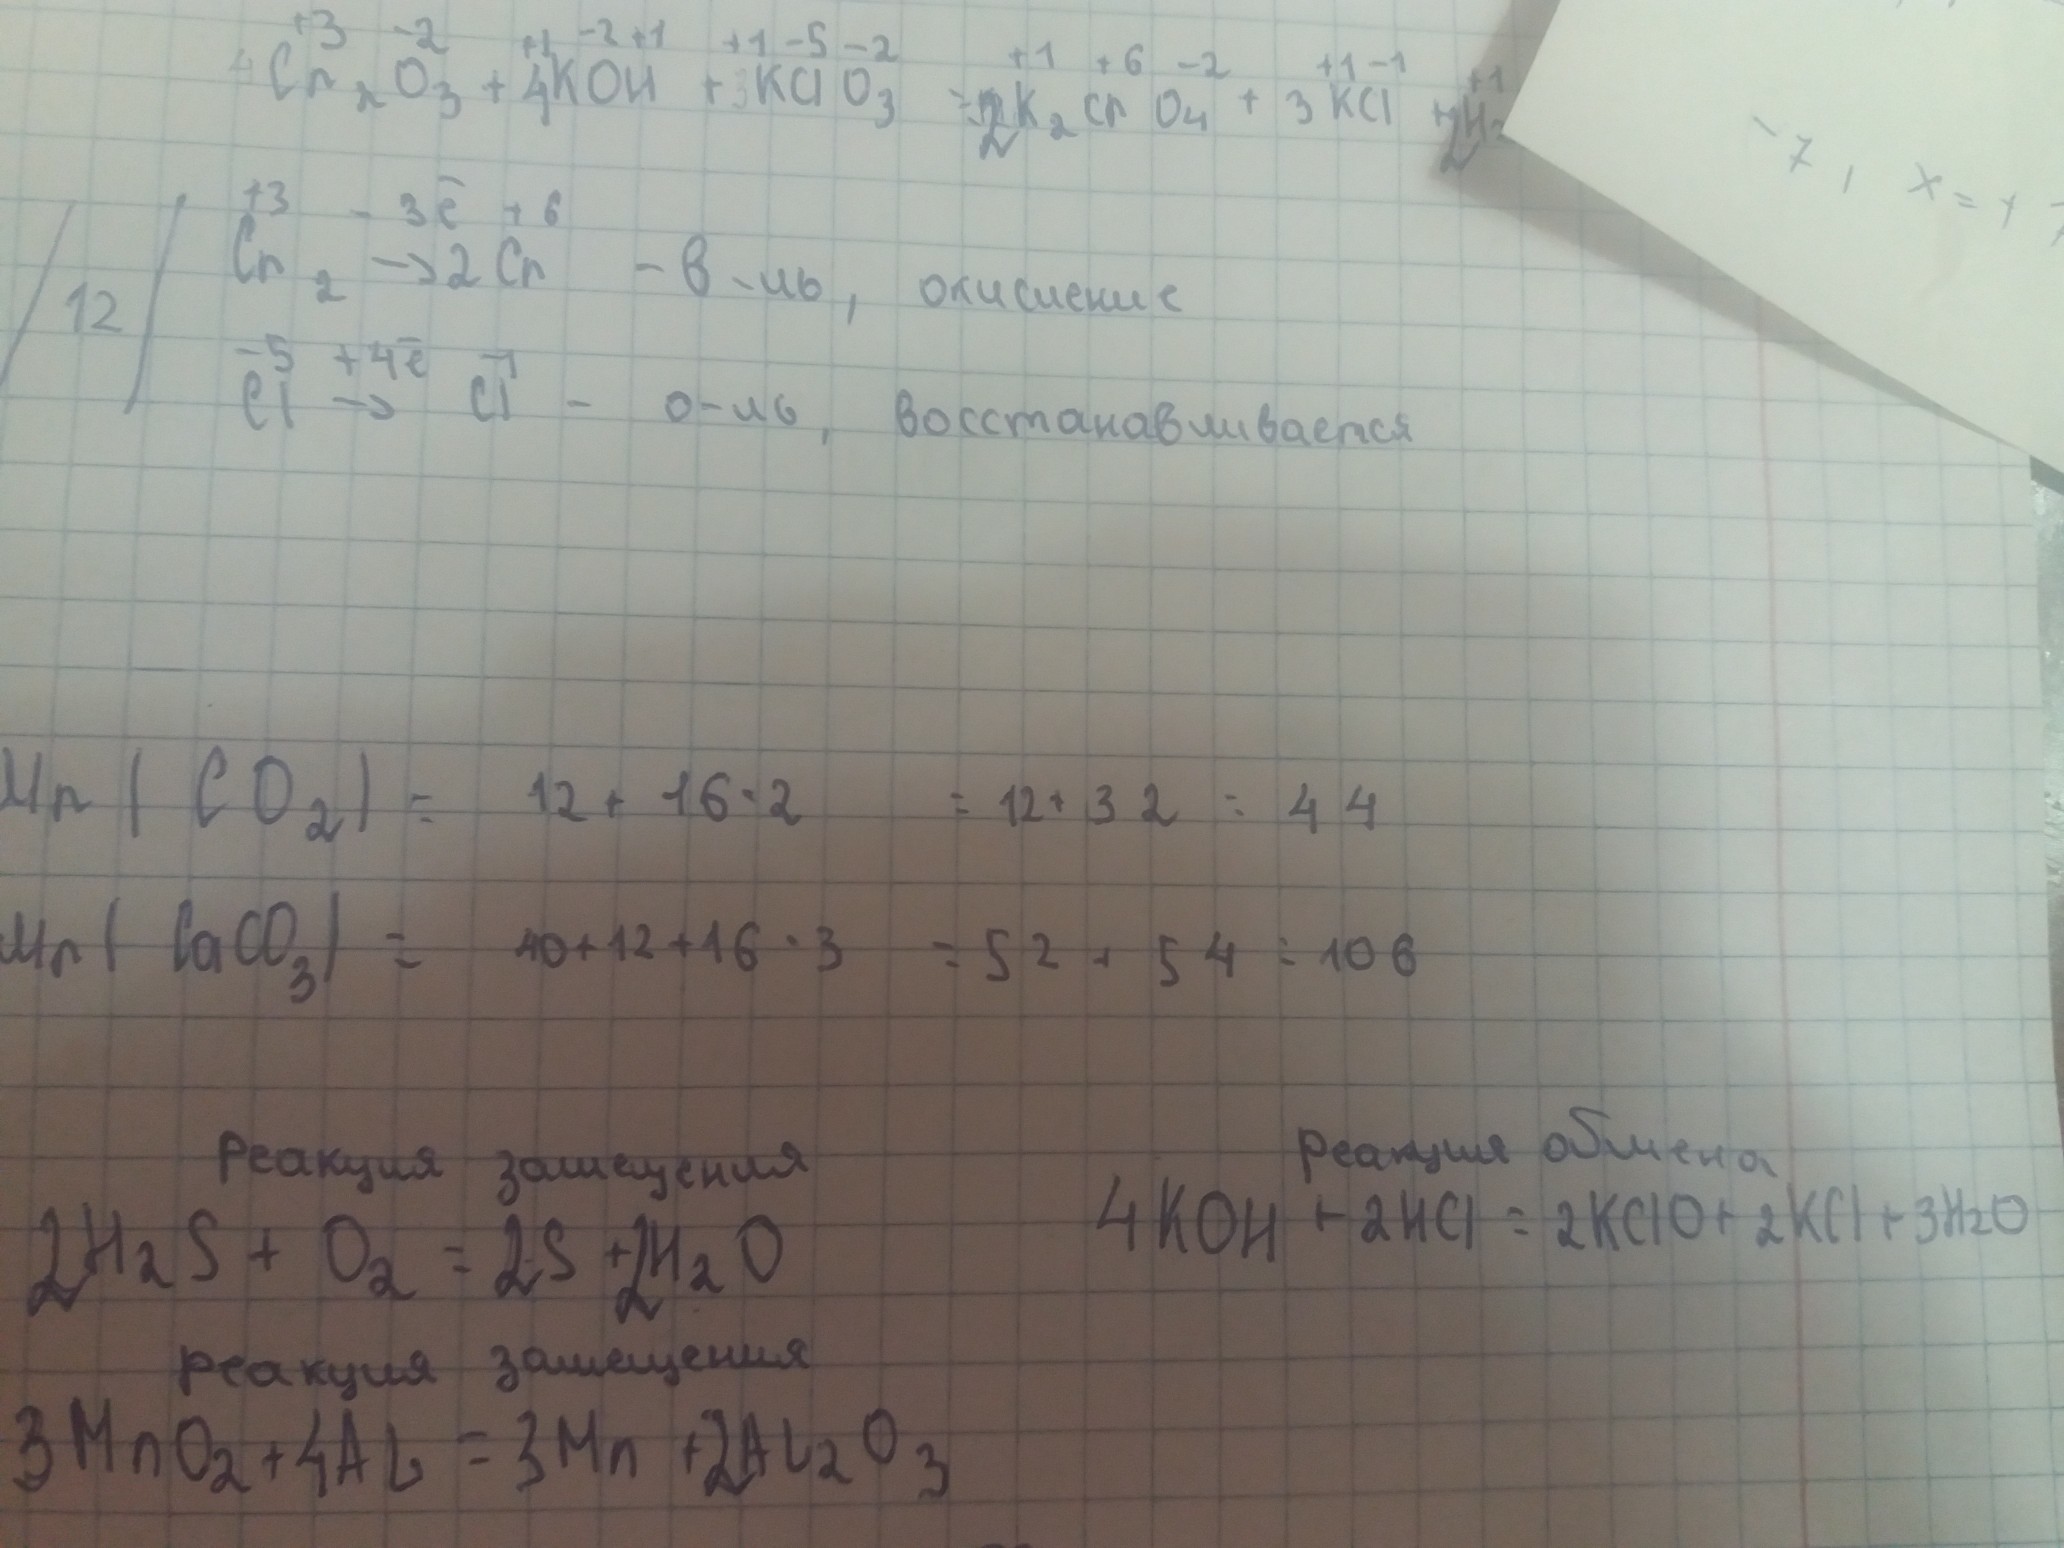 +3 -2 +1 -2 +1 +1 -5 -2 +1 +6 -2 +1 -1 +1
Cr₂O₃ + 4KOH + KClO₃ = 2K₂CrO₄ + 3KCl + 2H₂
+3 - 3ē +6
Cr₂ → 2Cr - в-ль, окисление
12
-5 +4ē -1
Cl → Cl - о-ль, восстанавливается
-7, x = y
Mr(CO₂) = 12 + 16·2 = 12 + 32 = 44
Mr(CaCO₃) = 40 + 12 + 16·3 = 52 + 54 = 106
Реакция замещения
2H₂S + O₂ = 2S + 2H₂O
реакция обмена
4KOH + 2HCl = 2KClO + 2KCl + 3H₂O
реакция замещения
3MnO₂ + 4AL = 3Mn + 2AL₂O₃